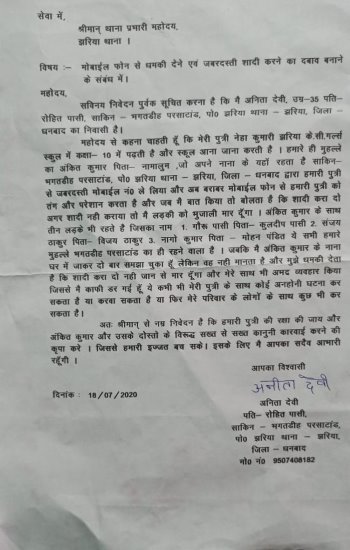 सेवा में,
श्रीमान् थाना प्रभारी महोदय,
झरिया थाना ।
विषय :– मोबाईल फोन से धमकी देने एवं जबरदस्ती शादी करने का दबाव बनाने
के संबंध में।
महोदय,
सविनय निवेदन पुर्वक सूचित करना है कि मै अनिता देवी, उम्र–35 पति–
रोहित पासी, साकिन – भगतडीह परसाटांड, पो0 झरिया थाना – झरिया, जिला –
धनबाद का निवासी है।
महोदय से कहना चाहती हूँ कि मेरी पुत्री नेहा कुमारी झरिया के.सी.गर्ल्स
स्कूल में कक्षा– 10 में पढ़ती है और स्कूल आना जाना करती है । हमारे ही मुहल्ले
का अंकित कुमार पिता– नामालुम ,जो अपने नाना के यहां रहता है साकिन–
भगतडीह परसाटांड, पो0 झरिया थाना – झरिया, जिला – धनबाद द्वारा हमारी पुत्री
से जबरदस्ती मोबाईल नं0 ले लिया और अब बराबर मोबाईल फोन से हमारी पुत्री को
तंग और परेशान करता है और जब मै बात किया तो बोलता है कि शादी करा दो
अगर शादी नही कराया तो मै लड़की को मुजाली मार दूँगा । अंकित कुमार के साथ
तीन लड़के भी रहते है जिसका नाम 1. गौरू पासी पिता– कुलदीप पासी 2. संजय
ठाकुर पिता– विजय ठाकुर 3. नागो कुमार पिता – मोहन पंडित ये सभी हमारे
मुहल्ले भगतडीह परसाटांड का ही रहने वाला है । जबकि मै अंकित कुमार के नाना
घर में जाकर दो बार समझा चुका हूँ लेकिन वह नही मानता है और मुझे धमकी देता
है कि शादी करा दो नही जान से मार दूंगा और मेरे साथ भी अभद्र व्यवहार किया
जिससे मै काफी डर गई हूँ ये कभी भी मेरी पुत्री के साथ कोई अनहोनी घटना कर
सकता है या करवा सकता है या फिर मेरे परिवार के लोगों के साथ कुछ भी कर
सकता है।
अतः श्रीमान से नम्र निवेदन है कि हमारी पुत्री की रक्षा की जाय और
अंकित कुमार और उसके दोस्तो के विरूद्ध सख्त से सख्त कानुनी कारवाई करने की
कृपा करे । जिससे हमारी इज्जत बच सके। इसके लिए मै आपका सदैव आभारी
रहूँगी ।
आपका विश्वासी
अनीता देवी
दिनांक : 18/07/2020
अनिता देवी
पति– रोहित पासी,
साकिन – भगतडीह परसाटांड,
पो0 झरिया थाना – झरिया,
जिला – धनबाद
मो0 नं0 9507408182